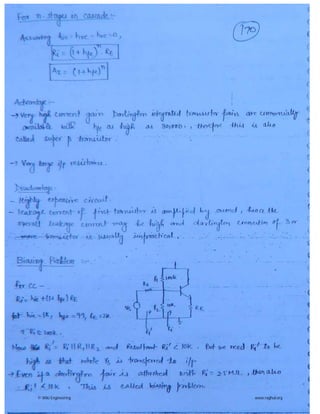 For n-stages in cascade :-
170
Assuming hie = hre = hoe = 0,
Ri = (1+hfe)^n RE
AI = (1+hfe)^n
Advantage :-
→ Very high current gain Darlington integrated transistor pair are commercially
available with hfe as high as 30,000. , therefore this is also
called super β transistor.
→ Very large i/p resistance.
Disadvantage :-
- Highly expensive circuit.
- leakage current of first transistor is amplified by second, hence the
overall leakage current may be high and darlington connection of 3 or
more transistor is usually impractical.
Biasing Problem
For CC -
Ri = hie + (1+hfe) RE
hfe = 99, RE = 1K
Ri ≤ 100K.
Now Ri' = Ri || R1 || R2 and Resultant Ri' < 10K . But we need Ri' to be
high so that whole is transferred to i/p
→ Even if a darlington pair is attached with Ri = 2.5 MΩ, then also
Ri' < 10K . This is called biasing problem
© Wiki Engineering
www.raghul.org